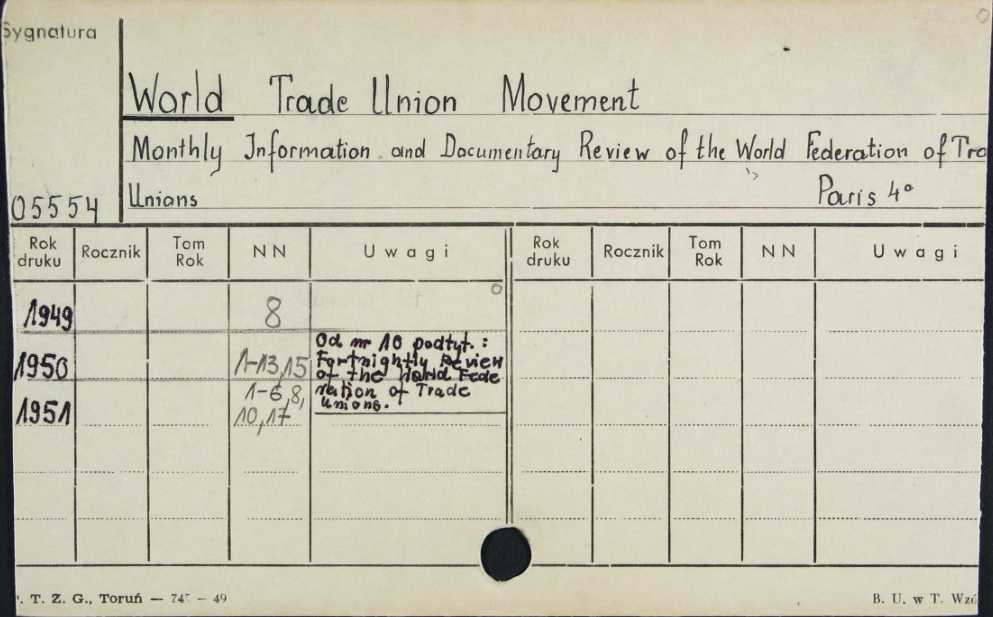 Sygnatura
World Trade Union Movement
Monthly Information and Documentary Review of the World Federation of Tra
05554 Unions Paris 4°
Rok druku Rocznik Tom Rok NN Uwagi Rok druku Rocznik Tom Rok NN Uwagi
1949 8
Od nr 10 podtyt.:
1950 1-13,15 Fortnightly Review
of the World Fede
1-6,8, ration of Trade
1951 10,17 Unions.
. T. Z. G., Toruń — 745 — 49 B. U. w T. Wzó